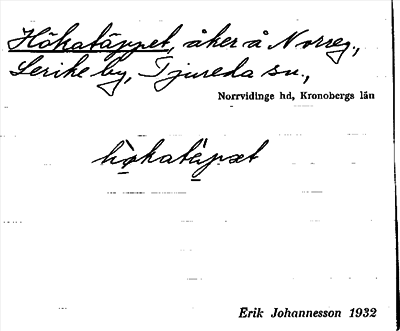 Hökatäppet, åker å Norreg.,
Lerike by, Tjureda sn.,
Norrvidinge hd, Kronobergs län
hökatäpæt
Erik Johannesson 1932